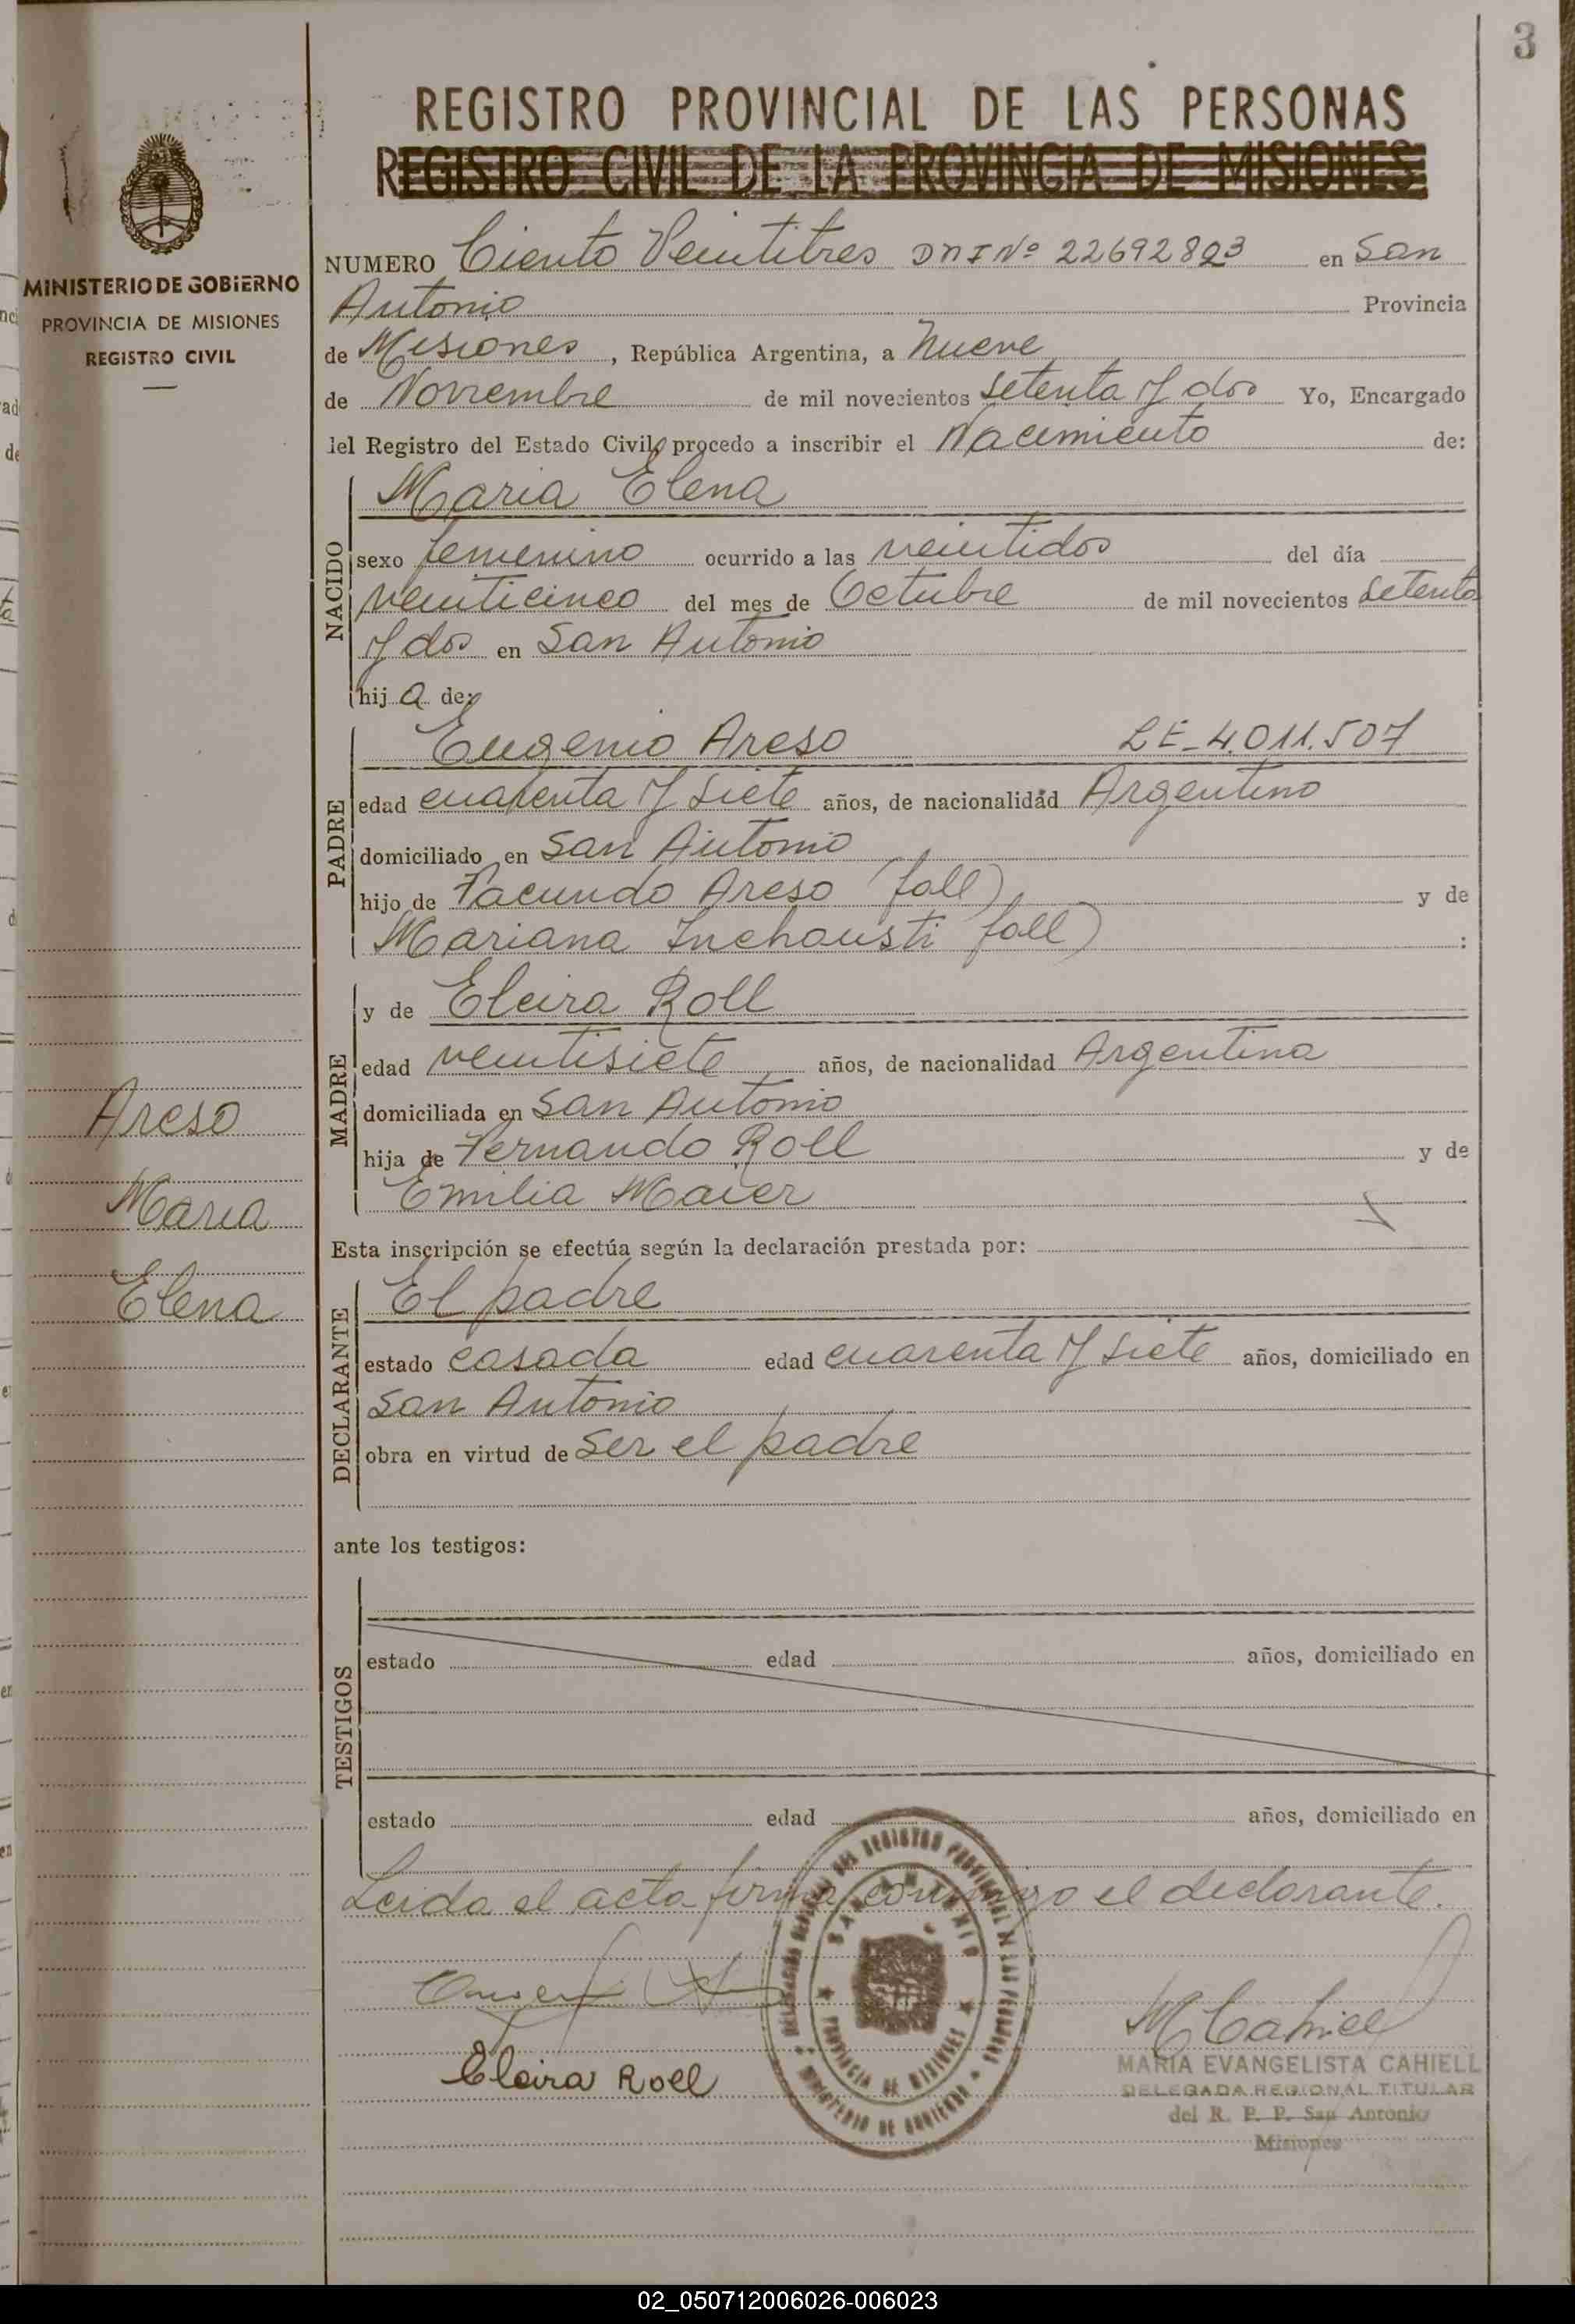 3
REGISTRO PROVINCIAL DE LAS PERSONAS
REGISTRO CIVIL DE LA PROVINCIA DE MISIONES
MINISTERIO DE GOBIERNO
PROVINCIA DE MISIONES
REGISTRO CIVIL
NUMERO Ciento Veintitres DNI Nº 22692823 en San
Antonio Provincia
de Misiones, República Argentina, a Nueve
de Noviembre de mil novecientos setenta y dos Yo, Encargado
del Registro del Estado Civil, procedo a inscribir el Nacimiento de:
NACIDO
Maria Elena
sexo femenino ocurrido a las veintidos del día
veinticinco del mes de Octubre de mil novecientos setenta
y dos en San Antonio
hij a de:
PADRE
Eugenio Areso LE-4.011.507
edad cuarenta y siete años, de nacionalidad Argentino
domiciliado en San Antonio
hijo de Facundo Areso (fall) y de
Mariana Inchausti fall) :
MADRE
y de Eleira Roll
edad veintisiete años, de nacionalidad Argentina
domiciliada en San Antonio
hija de Fernando Roll y de
Emilia Maier
Areso
Maria
Elena
Esta inscripción se efectúa según la declaración prestada por:
DECLARANTE
El padre
estado casada edad cuarenta y siete años, domiciliado en
San Antonio
obra en virtud de ser el padre
ante los testigos:
TESTIGOS
estado edad años, domiciliado en
estado edad años, domiciliado en
Leida el acta firma conmigo el declarante.
SAN ANTONIO
PROVINCIA DE MISIONES
Eleira Roll
MCahiell
MARIA EVANGELISTA CAHIELL
DELEGADA REGIONAL TITULAR
del R. P. P. San Antonio
Misiones
02_050712006026-006023